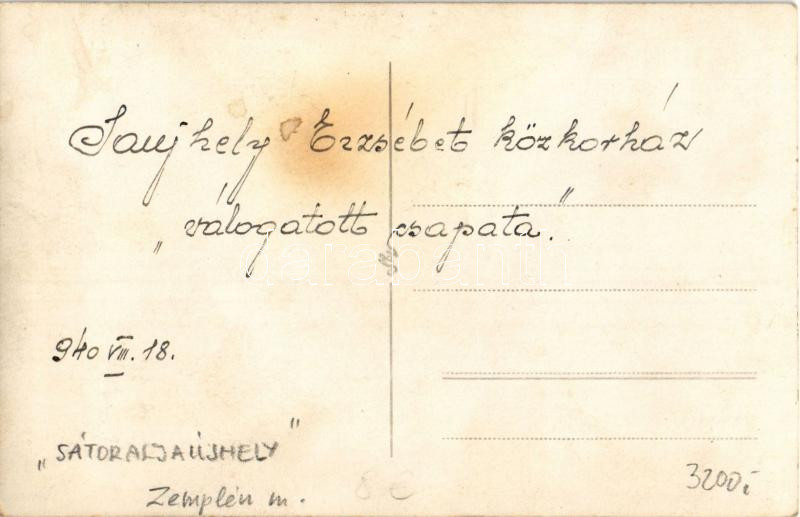 Saujhely Erzsébet közkorház
„válogatott csapata."
940 VIII. 18.
„SÁTORALJAÚJHELY"
Zemplén m.
8 €
3200,-